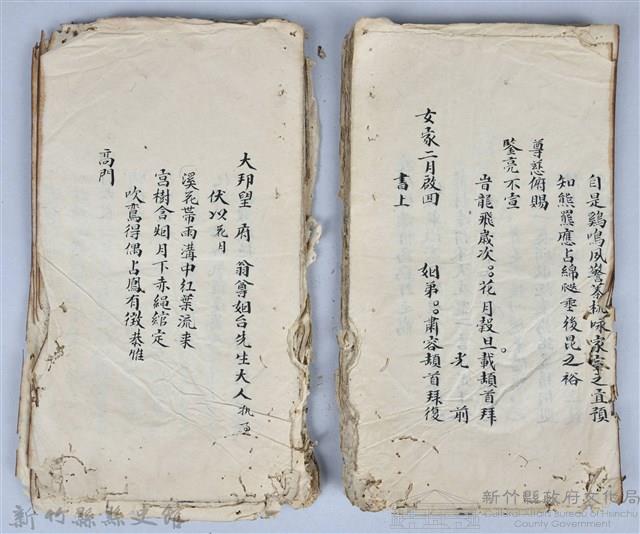 自是鷄鳴夙警桃咏家室之宜預
知熊羆應占綿瓞垂後昆之裕
尊慈俯賜
鑒亮不宣
旹龍飛歲次。。花月穀旦載頓首拜。
光前
女家二月啟回 姻弟。。肅容頓首拜復
書上
大邦望 府 翁尊姻台先生大人執事
伏以花月
溪花帶雨溝中紅葉流来
宮樹含姻月下赤繩綰定
吹鸞得偶占鳳有徵恭惟
高門
新竹縣縣史館
新竹縣政府文化局
Cultural Affairs Bureau of Hsinchu
County Government